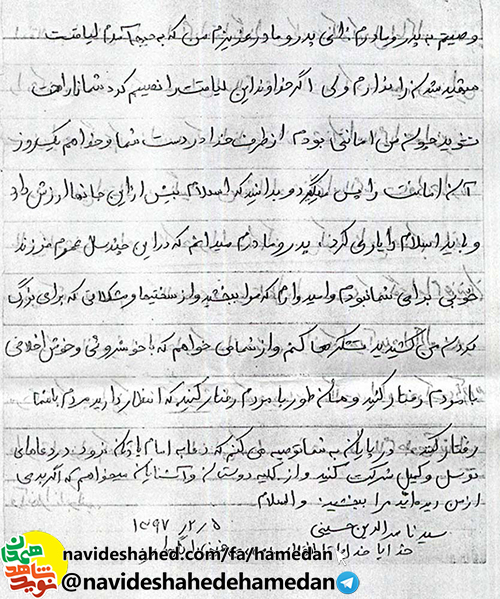 وصیتم به پدر و مادرم: ای پدر و مادر عزیزم من که به جبهه آمدم لیاقت
شهید شدن را ندارم ولی اگر خداوند این لیاقت را نصیبم کرد شما ناراحت
نشوید چون من امانتی بودم از طرف خدا در دست شما و خدا هم یکروز
امانت را پس میگیرد و بدانید که اسلام بیش از این جانها ارزش دارد
و باید اسلام را یاری کرد. پدر و مادرم میدانم که در این چند سال عمرم فرزند
خوبی برای شما نبودم و امیدوارم که مرا ببخشید و از سختیها و مشکلاتی که برای بزرگ
کردن من کشیدید تشکرها کنم و از شما می خواهم که با خوشروئی و خوش اخلاقی
با مردم رفتار کنید و همان طور با مردم رفتار کنید که انتظار دارید مردم با شما
رفتار کنند در پایان به شما توصیه می کنم که دعا به امام یادتان نرود در دعاهای
توسل و کمیل شرکت کنید و از کلیه دوستان و آشنایان میخواهم که اگر بدی
از من دیده اید مرا ببخشید والسلام
سید ناصرالدین حسینی ۱۳۶۷/۲/۵
خدایا خدایا
نوید شاهد همدان
navideshahed.com/fa/hamedan
@navideshahedehamedan